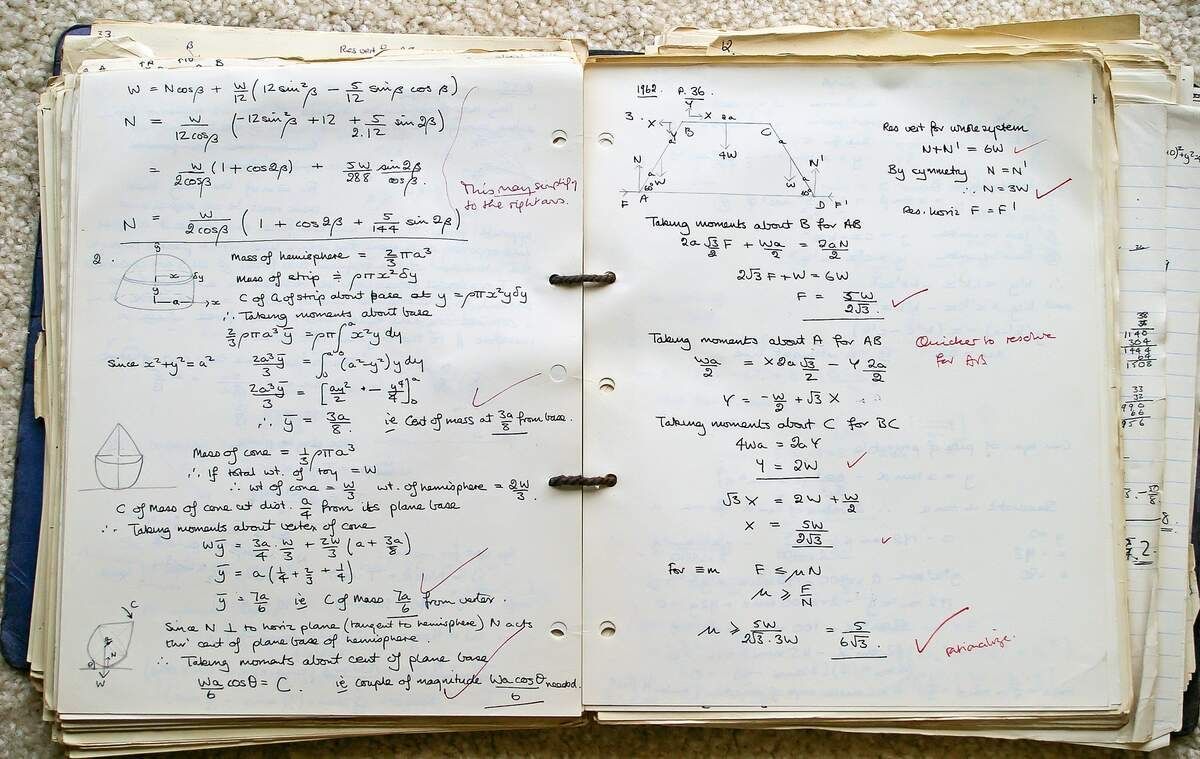 33
W = Ncosβ + W/12 (12sin²β − 5/12 sinβ cosβ)
N = W/12cosβ (−12sin²β + 12 + 5/2.12 sin2β)
= W/2cosβ (1 + cos2β) + 5W/288 sin2β/cosβ.
This may simplify
to the right ans.
N = W/2cosβ (1 + cos2β + 5/144 sin2β)
2.
Mass of hemisphere = 2/3 πa³
Mass of strip ≑ ρπx²δy
C of G of strip about base at y = ρπx²yδy
∴ Taking moments about base
2/3 ρπa³ȳ = ρπ∫₀ᵃ x²y dy
since x²+y² = a² 2a³ȳ/3 = ∫₀ᵃ (a²−y²) y dy
2a³ȳ/3 = [ay²/2 − y⁴/4]₀ᵃ
∴ ȳ = 3a/8. ie Cent of mass at 3a/8 from base.
Mass of cone = 1/3 ρπa³
∴ If total wt. of toy = W
∴ wt of cone = W/3 wt. of hemisphere = 2W/3.
C of Mass of cone at dist. a/4 from its plane base
∴ Taking moments about vertex of cone
Wȳ = 3a/4 . W/3 + 2W/3 (a + 3a/8)
ȳ = a(1/4 + 2/3 + 1/4)
ȳ = 7a/6 ie C of Mass 7a/6 from vertex.
Since N ⊥ to horiz plane (tangent to hemisphere) N acts
thro' cent of plane base of hemisphere.
∴ Taking moments about cent of plane base
Wa/6 cosθ = C. ie couple of magnitude Wa cosθ/6 needed.
y
x
δy
y
a
x
C
N
θ
W
2.
1962. P.36
3.
Y
X
X
2a
B
C
Y
a
a
4W
N
N'
a
a
W
W
60°
60°
F
A
D
F'
Res vert for whole system
N+N' = 6W
By symmetry N = N'
∴ N = 3W
Res. horiz F = F'
Taking moments about B for AB
2a√3F/2 + Wa/2 = 2aN/2
2√3F + W = 6W
F = 5W/2√3.
Taking moments about A for AB
Quicker to resolve
for AB
Wa/2 = X2a√3/2 − Y2a/2
Y = −W/2 + √3X
Taking moments about C for BC
4Wa = 2aY
Y = 2W
√3X = 2W + W/2
X = 5W/2√3
For ≡m F ≤ μN
μ ≥ F/N
μ ≥ 5W/2√3.3W = 5/6√3.
rationalize.